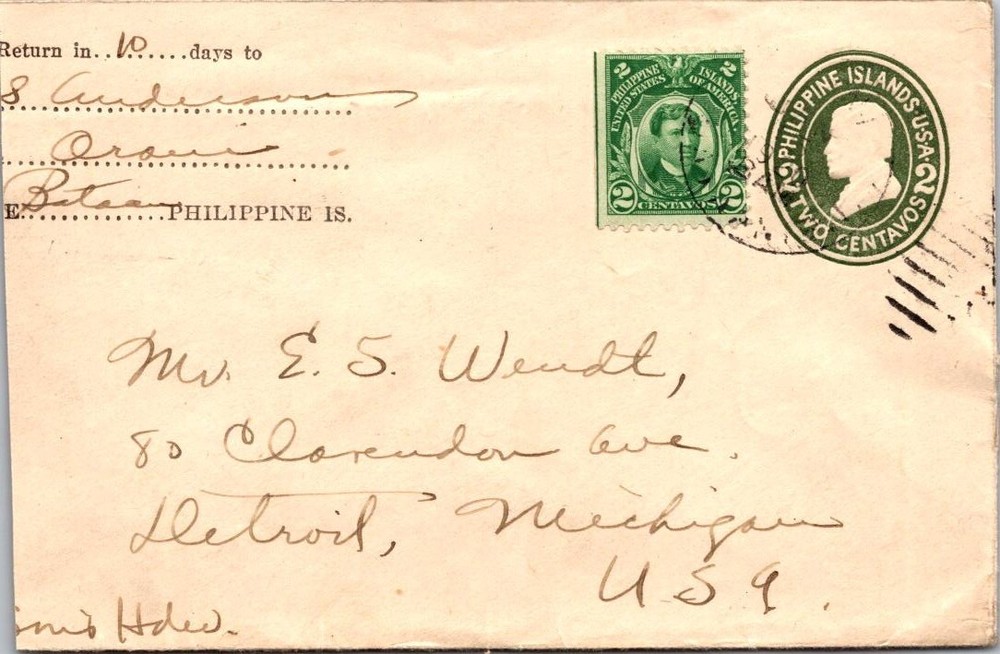 Return in..10......days to
S Anderson
Orani
Bataan PHILIPPINE IS.
2 2
PHILIPPINE ISLANDS
UNITED STATES OF AMERICA
2 CENTAVOS 2
PHILIPPINE ISLANDS·U·S·A·
2 2
TWO CENTAVOS
Mr. E. S. Wendt,
80 Clarendon Ave.
Detroit, Michigan
U S A.